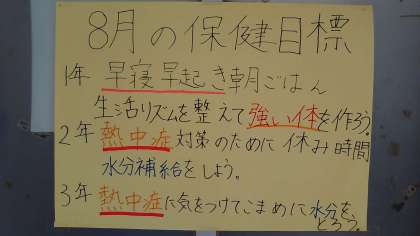 8月の保健目標
1年 早寝早起き朝ごはん
生活リズムを整えて強い体を作ろう。
2年 熱中症対策のために休み時間
水分補給をしよう。
3年 熱中症に気をつけてこまめに水分を
とろう。